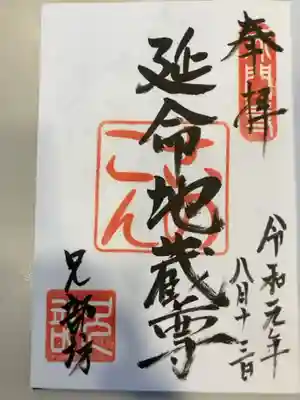 奉拝
延命地蔵尊
令和元年
八月十三日
兄部坊